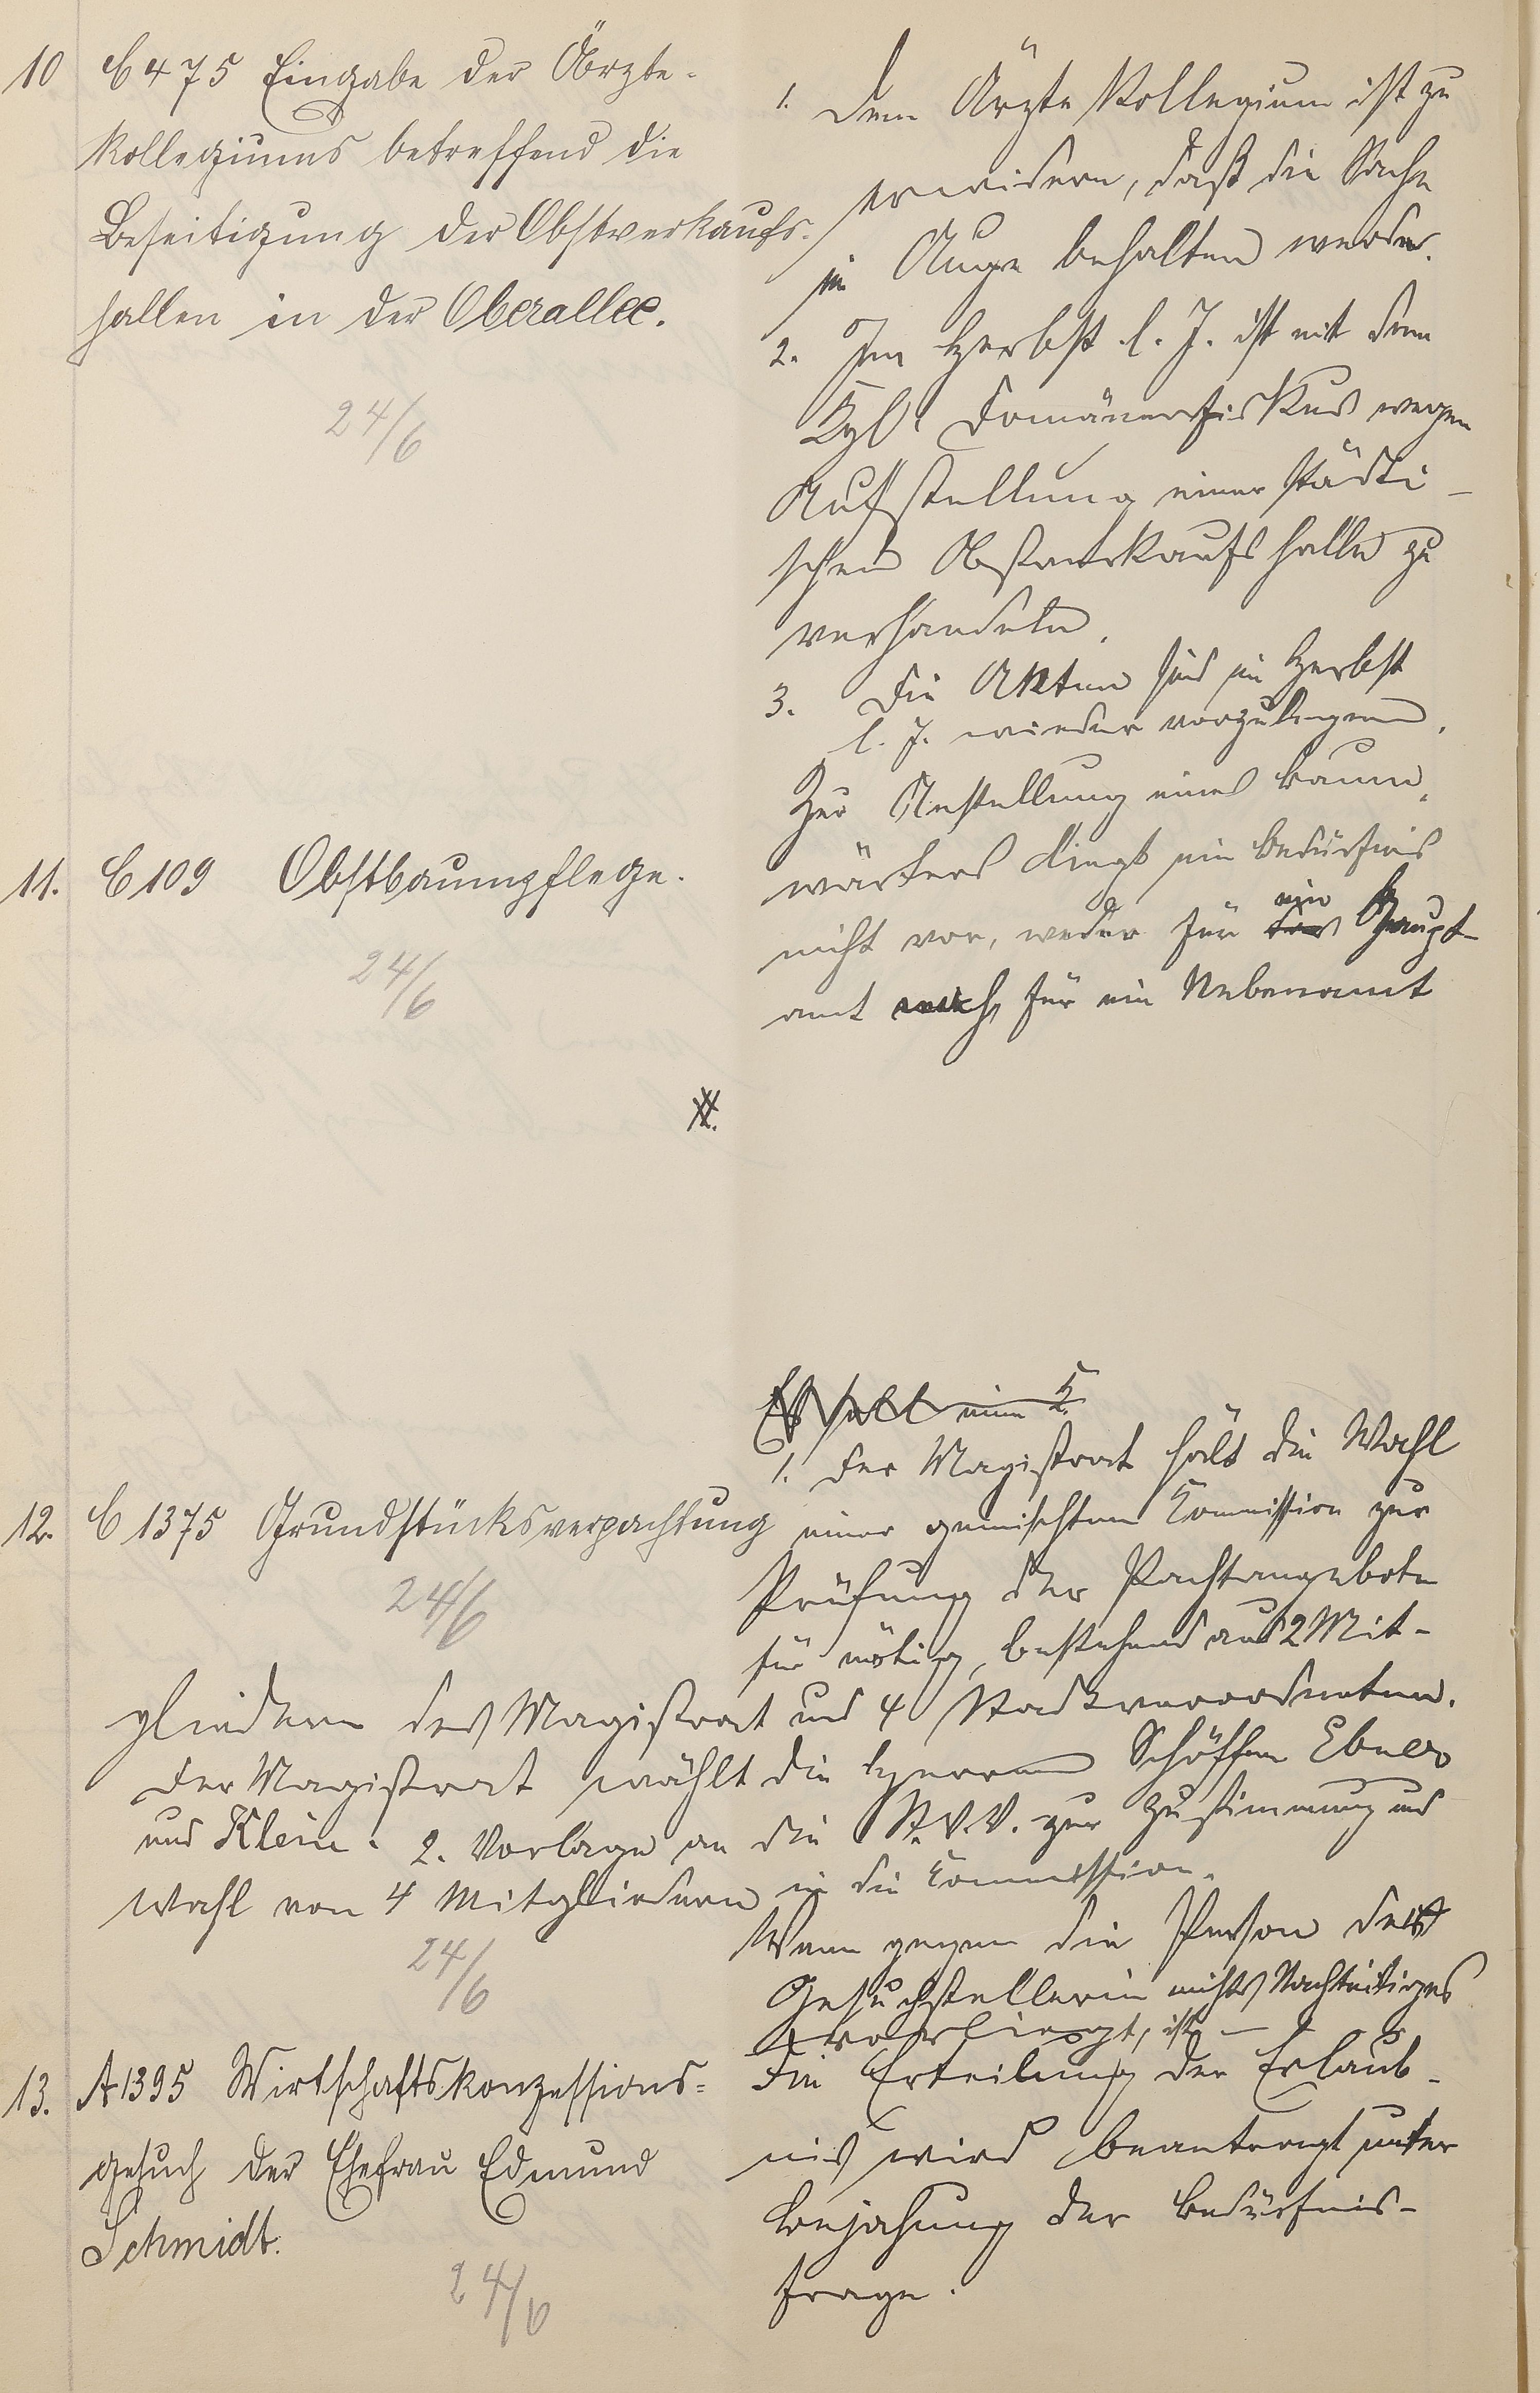 10 C 475 Eingabe des Ärzte-
kollegiums betreffend die
Beseitigung der Obstverkaufs-
hallen in der Oberallee.
24/6
1. Dem Ärzte Kollegium ist zu
erwidern, daß die Sache
im Auge behalten werde.
2. Im Herbst l. J. ist mit dem
Kgl. Domänenfiskus wegen
Aufstellung einer städti-
schen Obstverkaufshalle zu
verhandeln.
3. Die Akten sind im Herbst
l. J. wieder vorzulegen.
11. C 109 Obstbaumpflege.
24/6
Zur Anstellung eines Baum-
wärters liegt ein Bedürfnis
nicht vor, weder für das ein Haupt-
amt noch für ein Nebenamt
Es soll eine K.
12. C 1375 Grundstücksverpachtung
24/6
1. Der Magistrat hält die Wahl
einer gemischten Kommission zur
Prüfung der Pachtangebote
für nötig, bestehend aus 2 Mit-
gliedern des Magistrat und 4 Stadtverordneten.
Der Magistrat wählt die Herren Schöffen Ebner
und Klein. 2. Vorlage an die St. V. V. zur Zustimmung und
Wahl von 4 Mitgliedern in die Kommission.
24/6
13. A 1395 Wirtschaftskonzessions-
gesuch der Ehefrau Edmund
Schmidt.
24/6
Wenn gegen die Person der
Gesuchstellerin nichts Nachteiliges
vorliegt, ist
Die Erteilung der Erlaub-
nis wird beantragt unter
Bejahung der Bedürfnis-
frage.